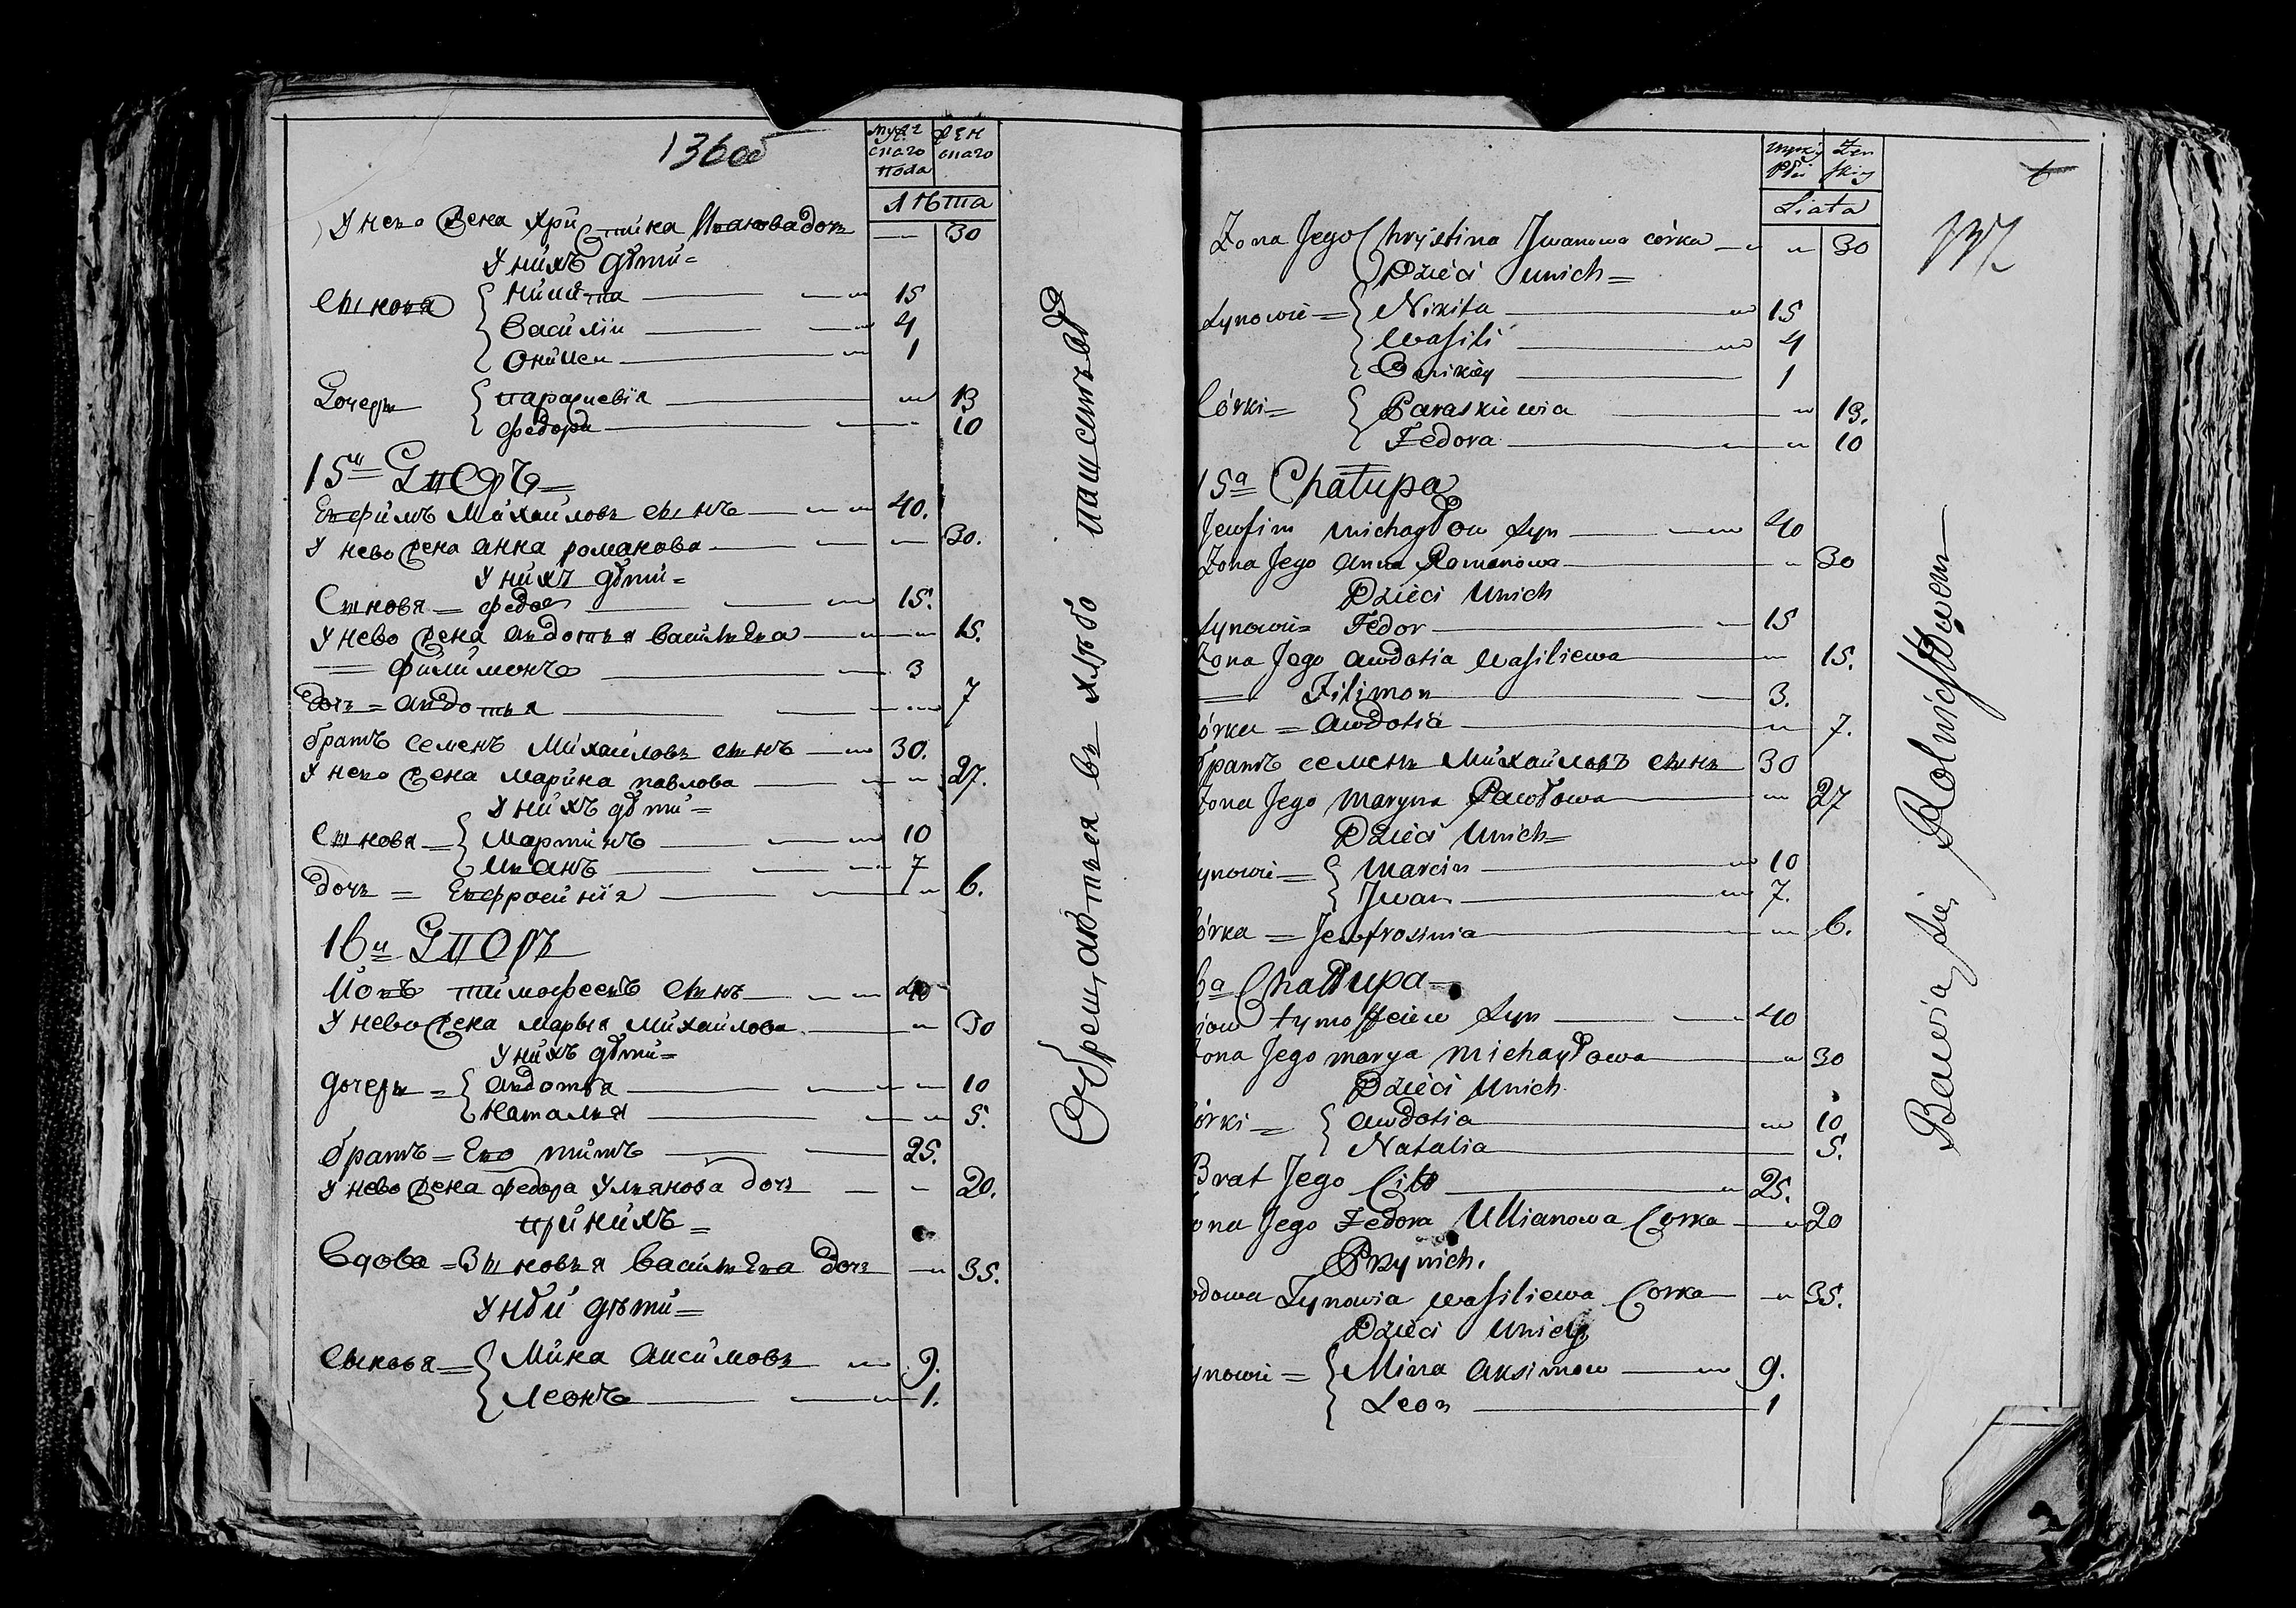 136об
мужескаго пола
женскаго
лѣта
У нево жена христина Иванова дочь — 30
У нихъ дѣти =
Сыновя { никита — 15
василіи — 4
Оникеи — 1
Дочери { параскевія — 13
федора — 10
15й Дворъ =
Евфимъ Михаиловъ сынъ — 40.
У нево жена анна романова — 30.
У нихъ дѣти =
Сыновя = федор — 15.
У нево жена авдотья василева — 15.
= филимонъ — 3
дочь = авдотья — 7
братъ семенъ Михаиловъ сынъ — 30.
У нево жена марина павлова — 27.
У нихъ дѣти =
Сыновя = { мартинъ — 10
иванъ — 7
дочь = Евфросинія — 6.
16й Дворъ
Иовъ тимофеевъ сынъ — 40
У нево жена марья михаилова — 30
У нихъ дѣти =
дочери = { авдотья — 10
наталья — 5.
братъ = Ево титъ — 25.
У нево жена федора Ульянова дочь — 20.
при нихъ =
Вдова = Зиновья василева дочь — 35.
У нѣи дѣти =
сыновя = { Мина Аксимовъ — 9.
Леонъ — 1.
Обрещаютьея въ хлѣбо пашестьвѣ
137
Męzkiy Płci
Żenskiy
Liata
Zona Jego Chrystina Jwanowa córka — 30
Dzieci unich =
Synowie = { Nikita — 15
Wasili — 4
Onikiey — 1
Córki = { Paraskiewia — 13.
Fedora — 10
15a Chałupa
Jewfim Michayłow Syn — 40
Zona Jego Anna Romanowa — 30
Dzieci Unich
Synowie = Fedor — 15
Zona Jego Awdotia Wasiliewa — 15.
= Filimon — 3.
órka = Awdotia — 7.
братъ семенъ Михаиловъ сынъ 30
Zona Jego Maryna Pawłowa — 27
Dzieci Unich =
ynowie = { Marcin — 10
Jwan — 7.
órka = Jewfrosinia — 6.
6a Chałupa =
iow tymoffeiew Syn — 40
ona Jego marya Michayłowa — 30
Dzieci Unich
órki = { Awdotia — 10
Natalia — 5.
Brat Jego Cito — 25.
ona Jego Fedora Ullianowa Corka — 20
Przynich.
dowa Zynowia Wasiliewa Corka — 35.
Dzieci Uniey
ynowie = { Mina Aksimow — 9.
Leon — 1
Bawia sie Rolnictwem